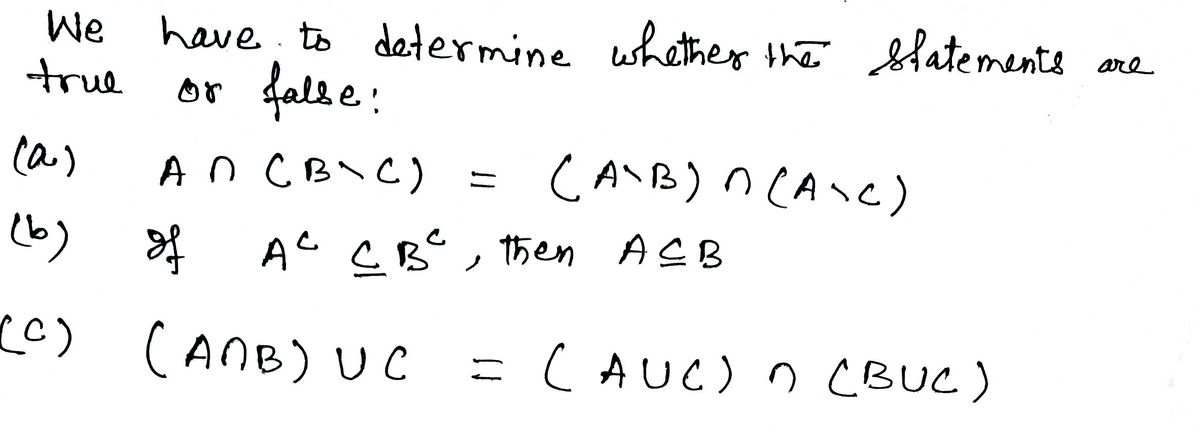 We have to determine whether the statements are
true or false:
(a) A ∩ (B∖C) = (A∖B) ∩ (A∖C)
(b) If Aᶜ ⊆ Bᶜ, then A ⊆ B
(c) (A∩B) ∪ C = (A∪C) ∩ (B∪C)